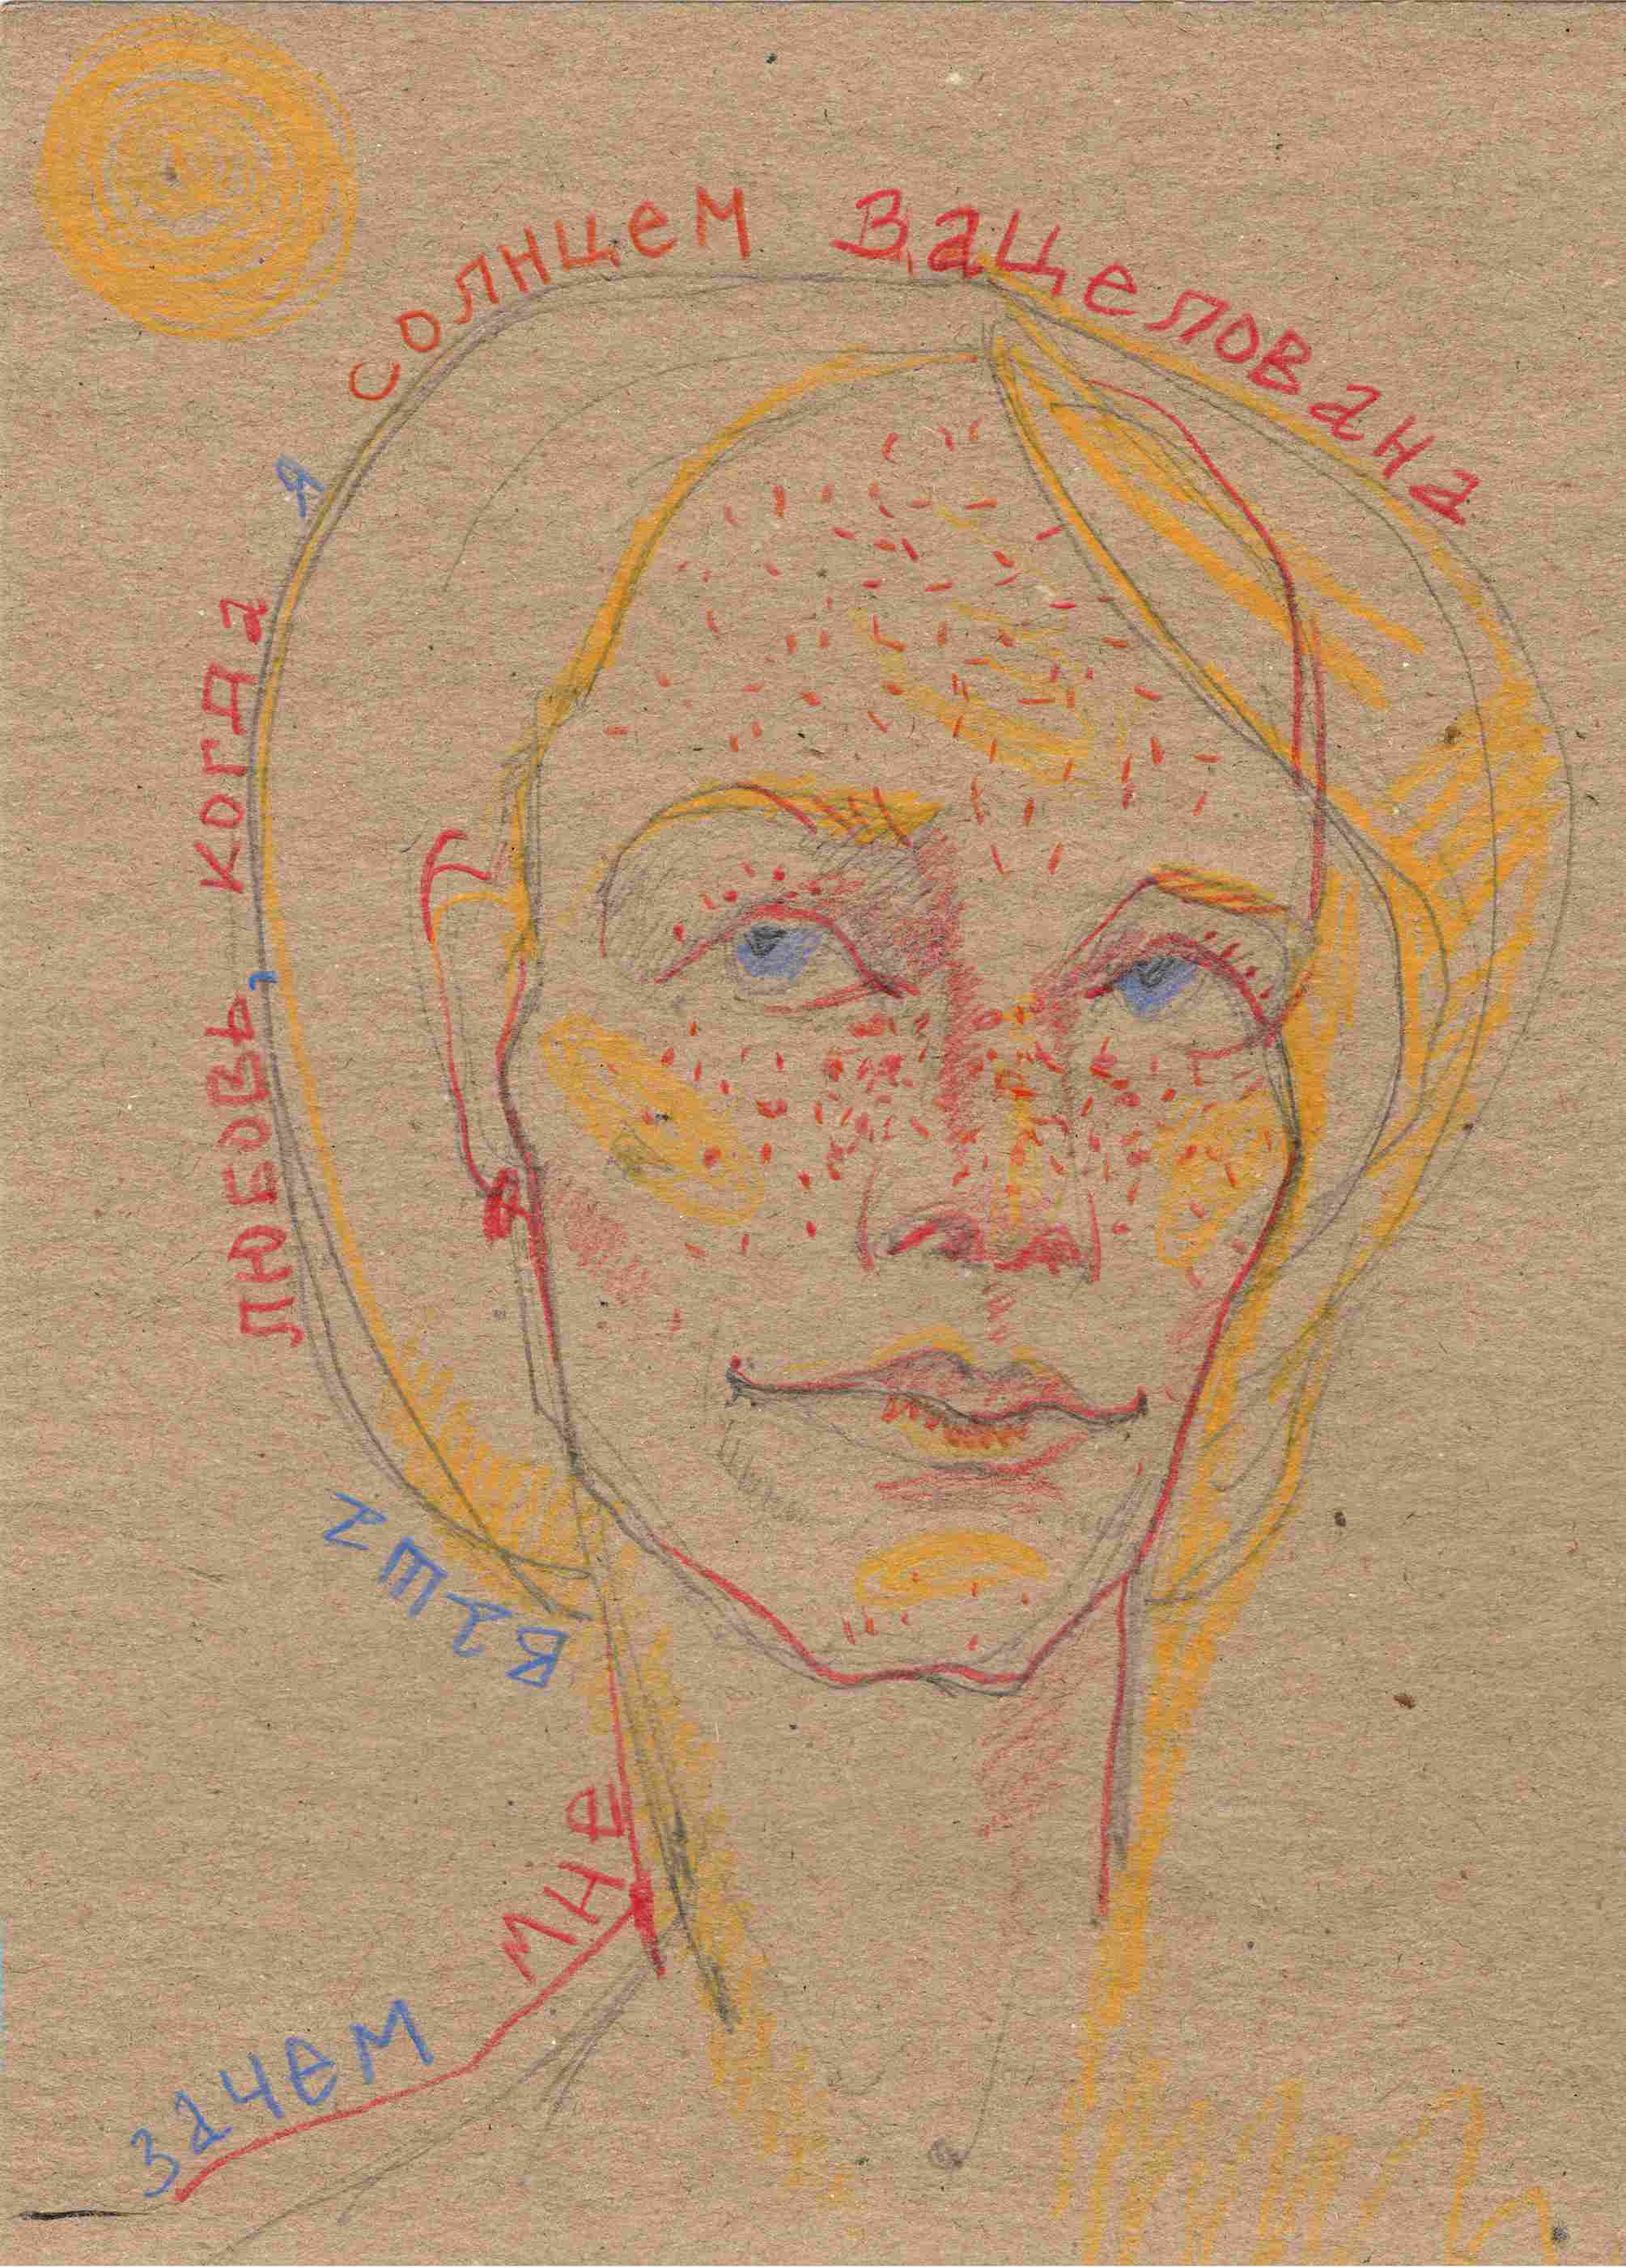 зачем мне
ваша
любовь, когда
я солнцем зацелована